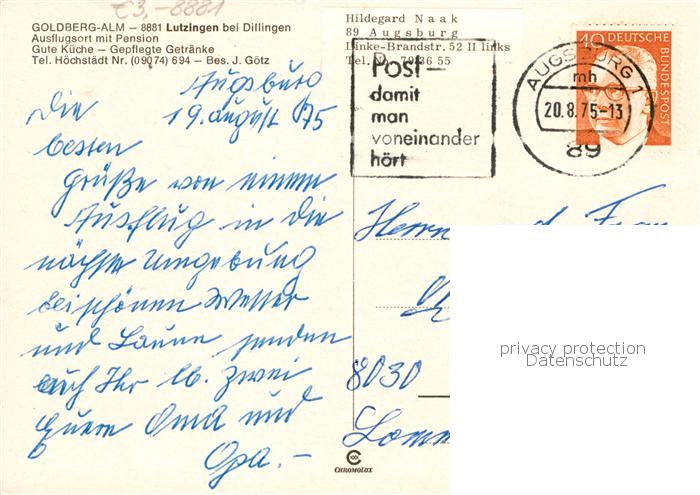 €3,- 8881
GOLDBERG-ALM – 8881 Lutzingen bei Dillingen
Ausflugsort mit Pension
Gute Küche – Gepflegte Getränke
Tel. Höchstädt Nr. (09074) 694 – Bes. J. Götz
Hildegard Naak
89 Augsburg
Linke-Brandstr. 52 II links
Tel. Nr.
Post-
damit
man
voneinander
hört
AUGSBURG 1
mh
20.8.75-13
89
40
DEUTSCHE
BUNDESPOST
Augsburg
19. August 75
Die
besten
Grüße von einem
Ausflug in die
nächste Umgebung
bei schönen Wetter
und Laune senden
auch Ihr lb. zwei
Euere Oma und
Opa.-
Herrn
8030
CHROMOLUX
privacy protection
Datenschutz